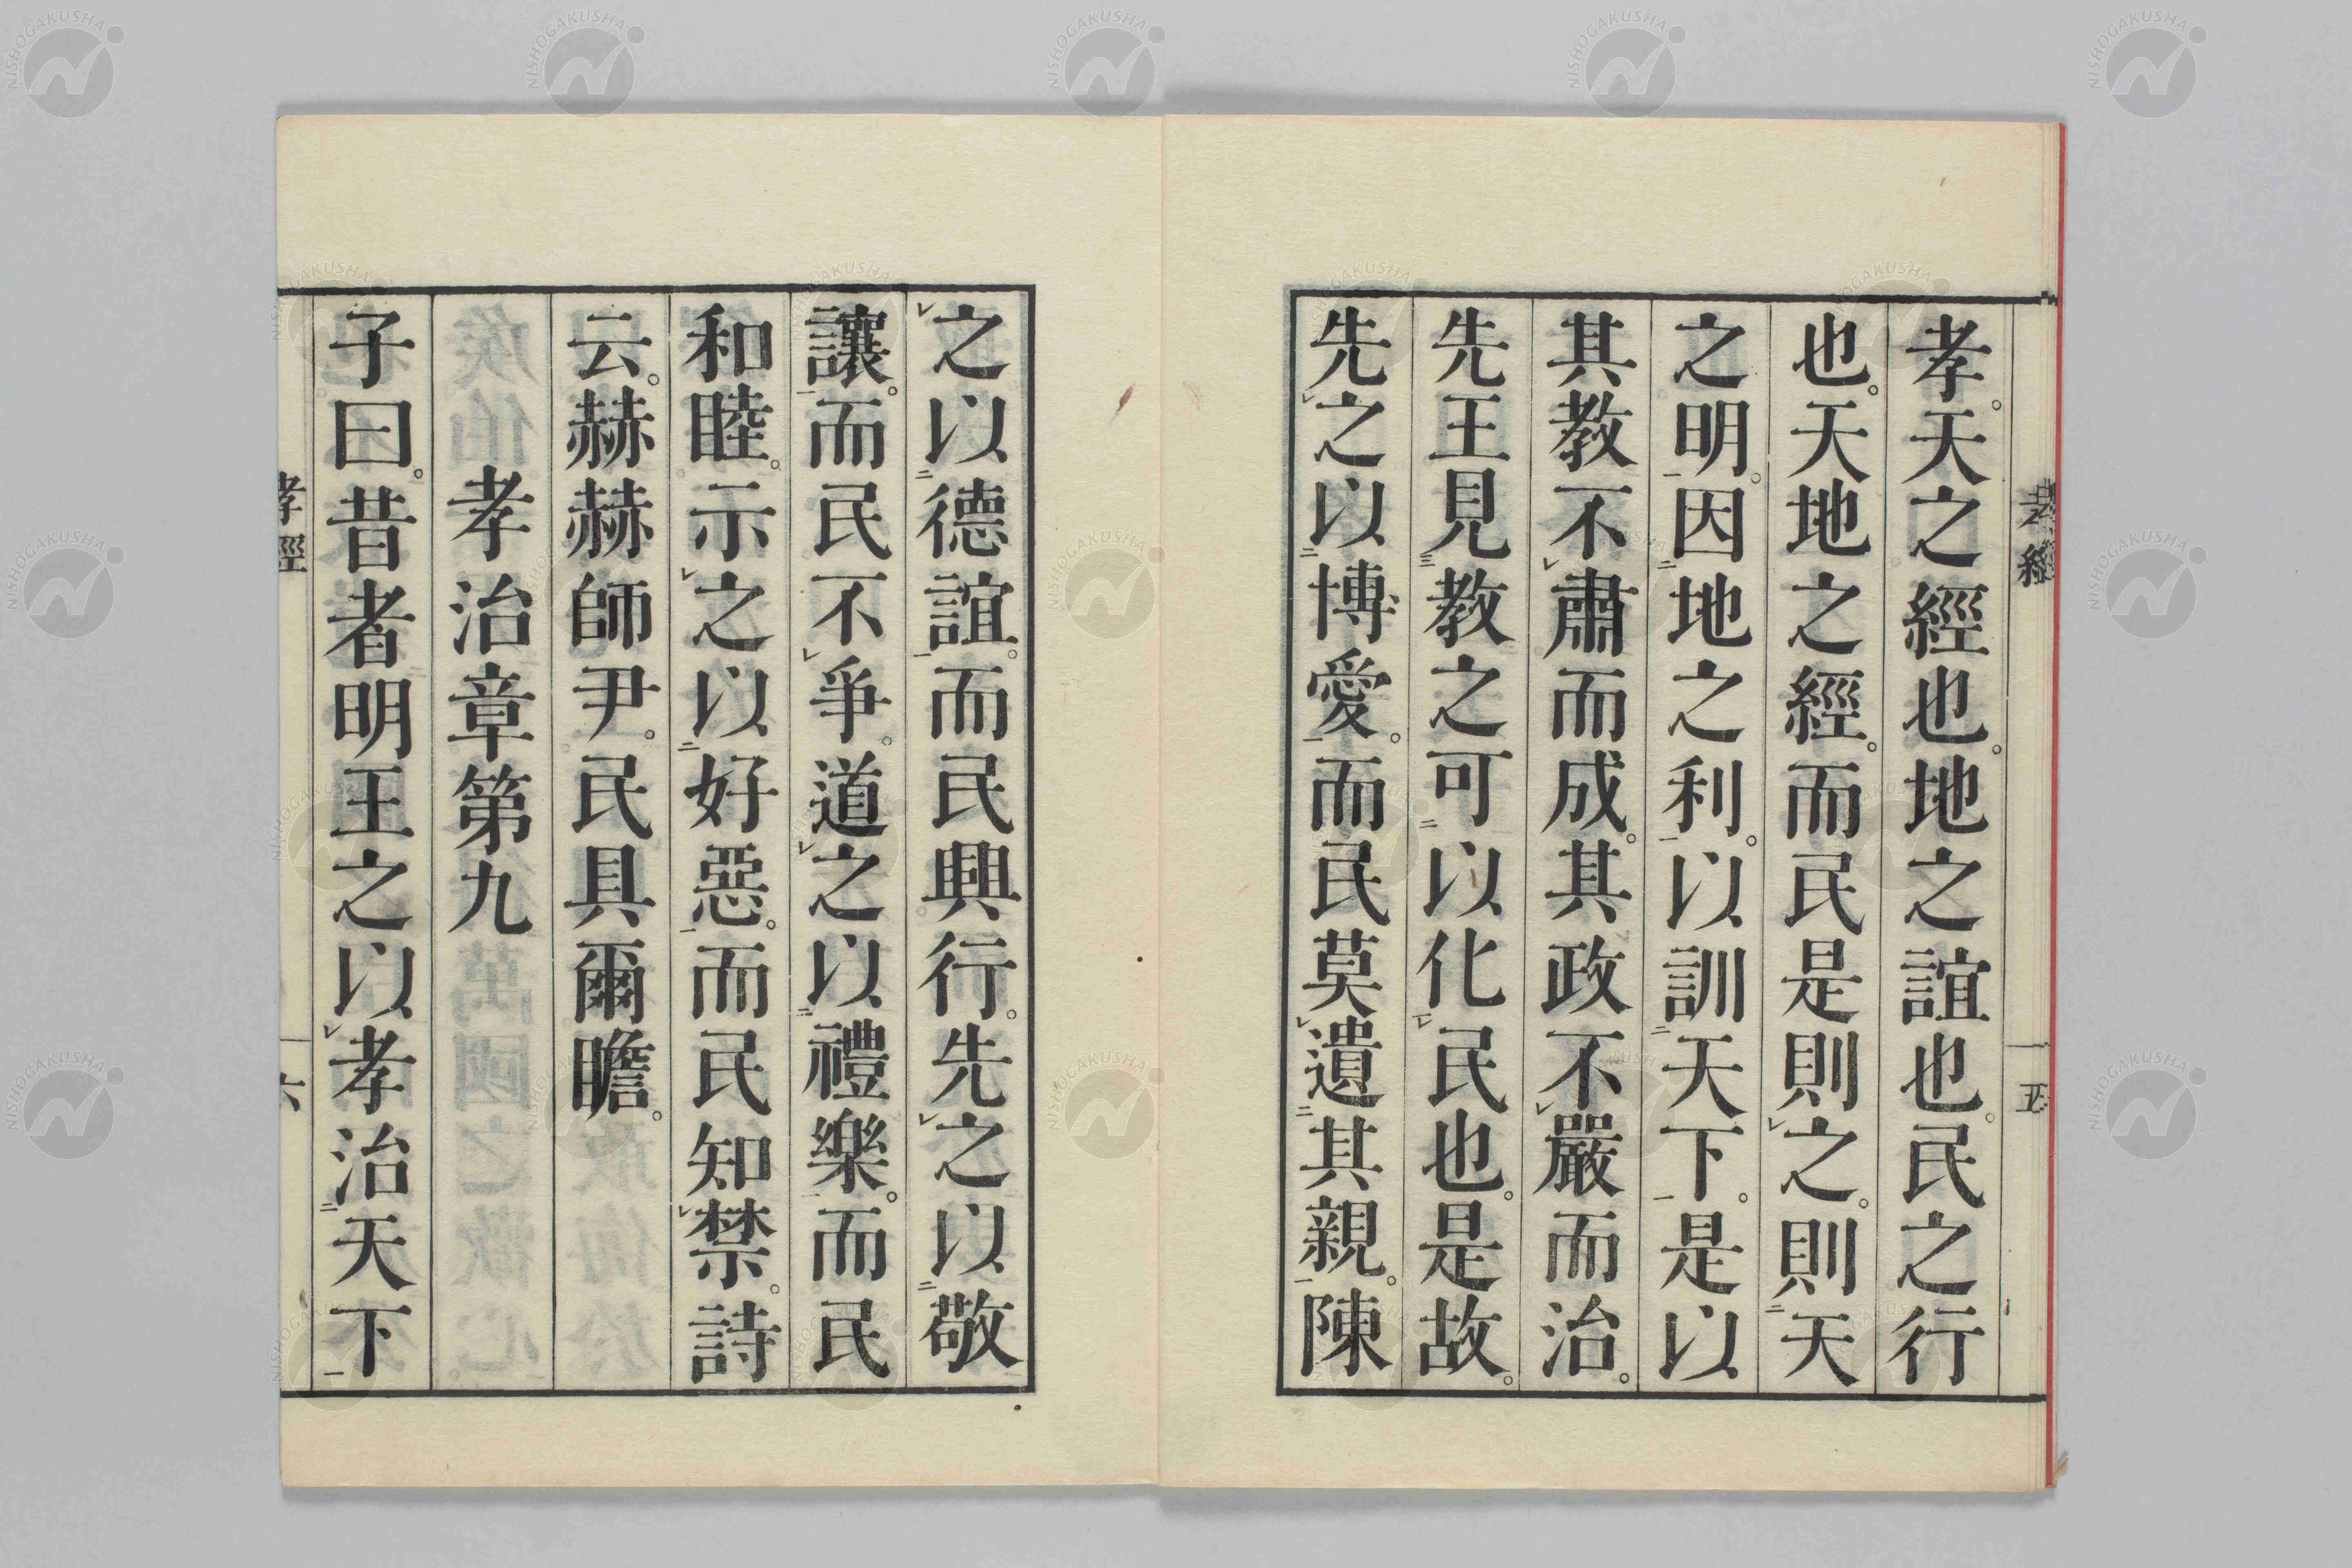 孝經
五
孝。天之經也。地之誼也。民之行
也。天地之經。而民是則㆑之。則㆓天
之明㆒。因㆓地之利㆒。以訓㆓天下㆒。是以
其教不㆑肅而成。其政不㆑嚴而治。
先王見㆘教之可㆗以化㆖㆑民也。是故。
先㆑之以㆓博愛㆒。而民莫㆑遺㆓其親㆒。陳
㆑之以㆓德誼㆒。而民興行。先㆑之以㆓敬
讓㆒。而民不㆑爭。道㆑之以㆓禮樂㆒。而民
和睦。示㆑之以㆓好惡㆒。而民知㆑禁。詩
云。赫赫師尹。民具爾瞻。
孝治章第九
子曰。昔者明王之以㆑孝治㆓天下㆒
孝經
六